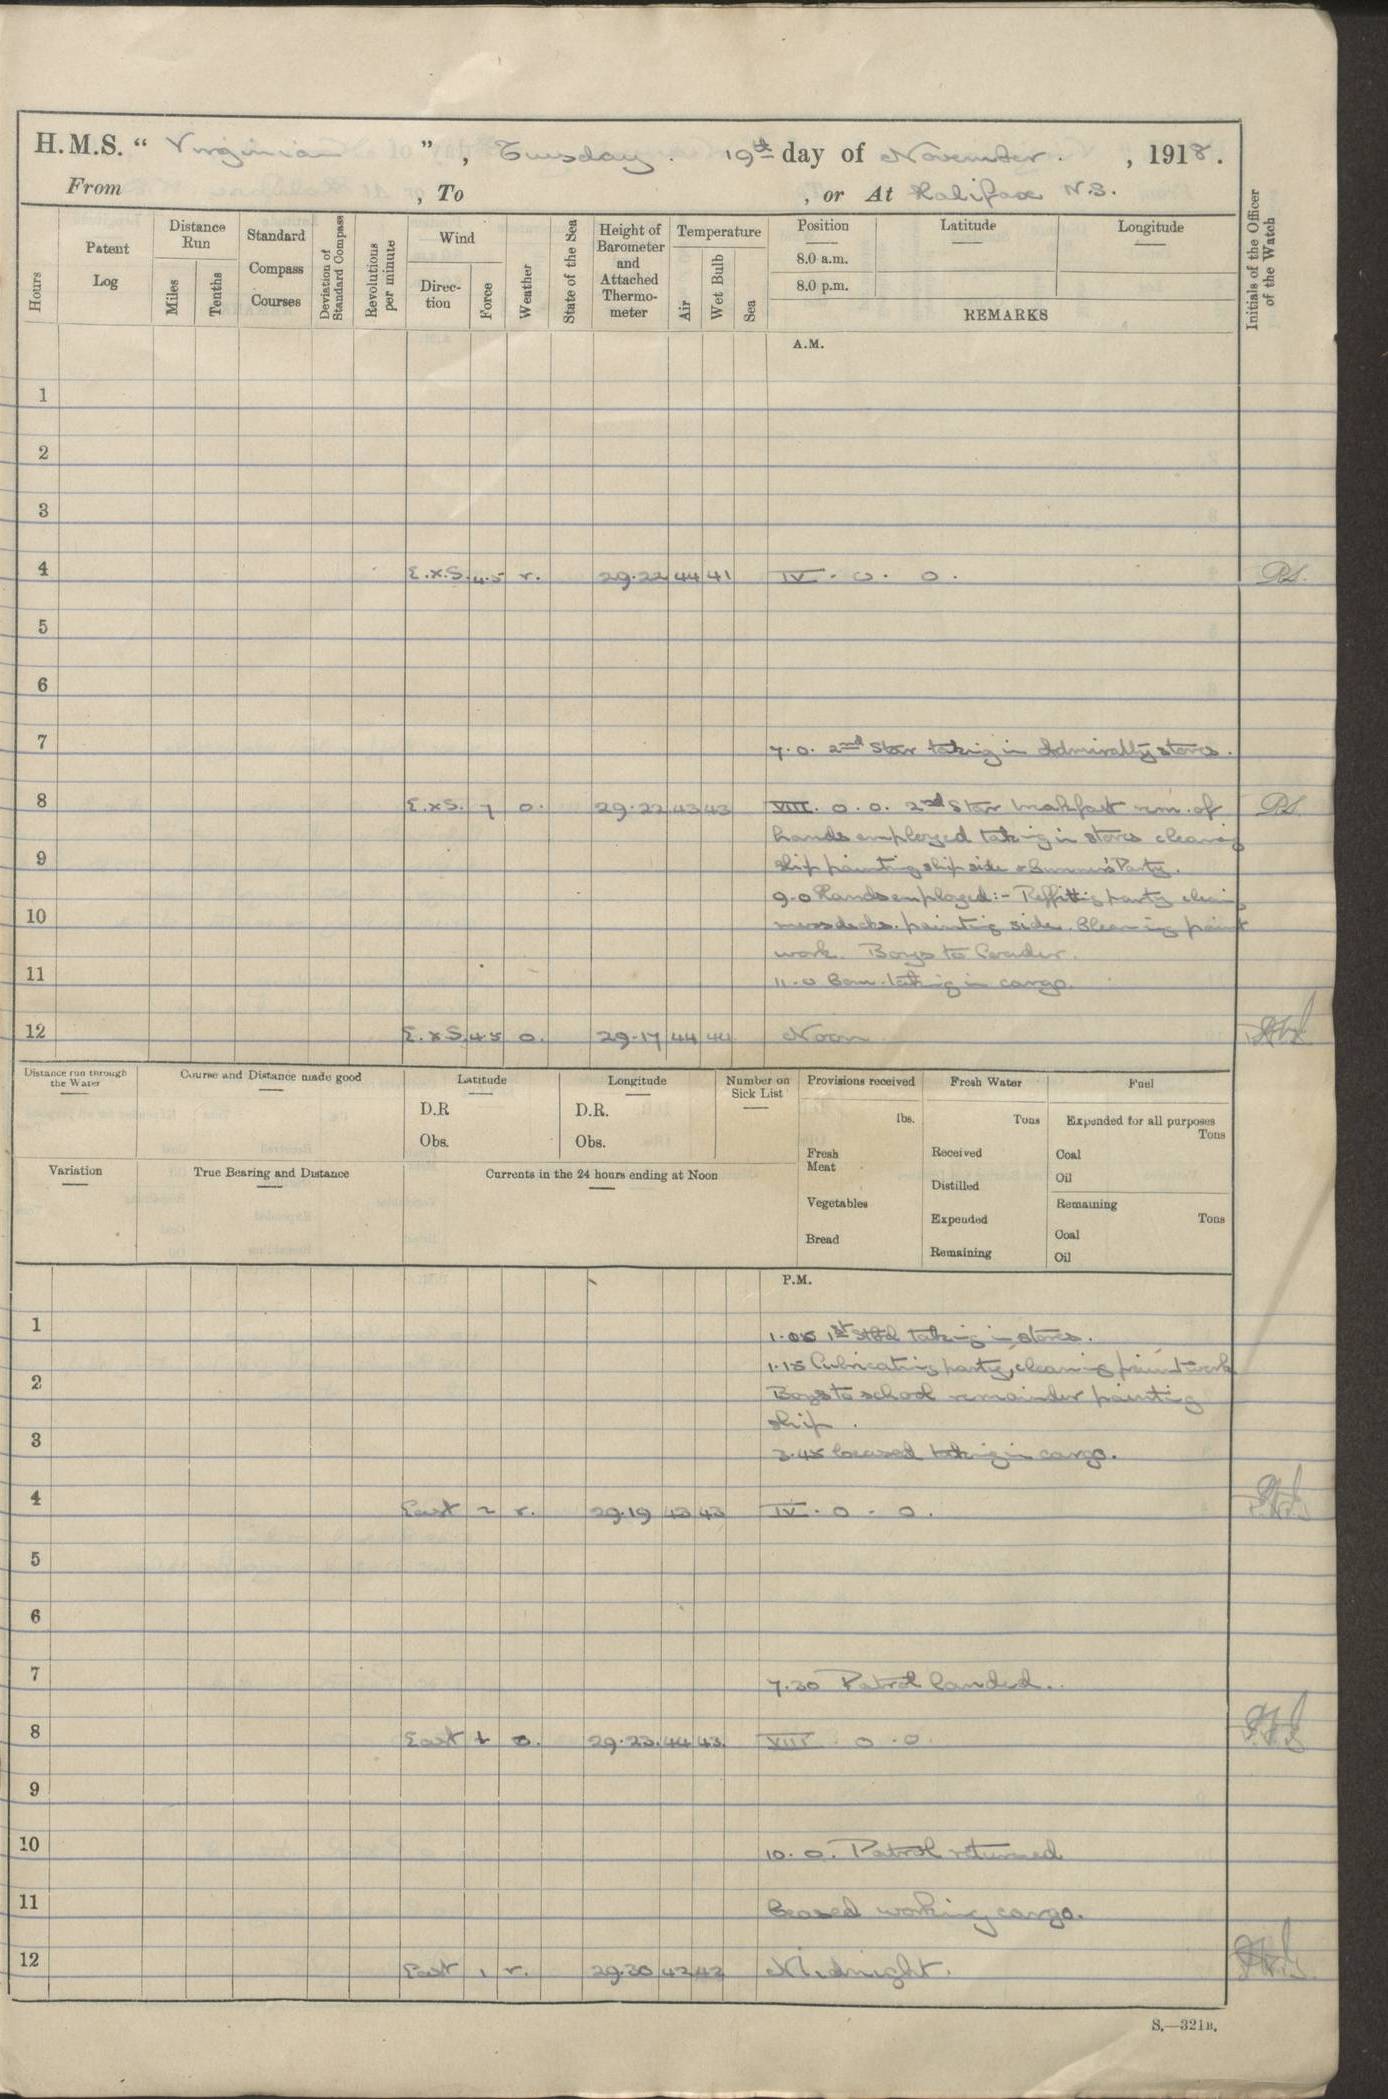 H.M.S. “ Virginian ” , Tuesday . 19th day of November . , 1918 .
From , To , or At Halifax N.S.
Hours
Patent Log
Distance Run
Miles
Tenths
Standard Compass Courses
Deviation of Standard Compass
Revolutions per minute
Wind
Direction
Force
Weather
State of the Sea
Height of Barometer and Attached Thermometer
Temperature
Air
Wet Bulb
Sea
Position
8.0 a.m.
8.0 p.m.
Latitude
Longitude
REMARKS
Initials of the Officer of the Watch
A.M.
1
2
3
4 E.x.S. 4.5 r. 29.22 44 41 IV . o . o .
5
6
7 7.0. 2nd Star taking in Admiralty stores.
8 E.xS. 7 o. 29.22 43 43 VIII. o. o. 2nd Star breakfast rem. of
hands employed taking in stores cleaning
9 ship painting ship side & Gunner's Party.
9.0 Hands employed:- Reffitting party cleaning
10 messdecks. painting side. Cleaning paint
work. Boys to
11 11.0 Com. taking in cargo.
12 E.xS. 4.5 o. 29.17 44 44 Noon
Distance run through the Water
Course and Distance made good
Latitude
D.R
Obs.
Longitude
D.R.
Obs.
Number on Sick List
Provisions received
lbs.
Fresh Meat
Vegetables
Bread
Fresh Water
Tons
Received
Distilled
Expended
Remaining
Fuel
Expended for all purposes
Tons
Coal
Oil
Remaining
Tons
Coal
Oil
Variation
True Bearing and Distance
Currents in the 24 hours ending at Noon
P.M.
1 1.05 1st taking in stores.
1.15 Lubricating party, cleaning paintwork
2 Boys to school remainder painting
ship .
3 3.45 Ceased taking in cargo.
4 East 2 r. 29.19 43 43 IV . o . o .
5
6
7 7.30 Patrol landed.
8 East o. 29.23. 44 43. VIII o . o
9
10 10. o. Patrol returned
11 Ceased working cargo.
12 East 1 r. 29.30 42 42 Midnight.
S.—321B.